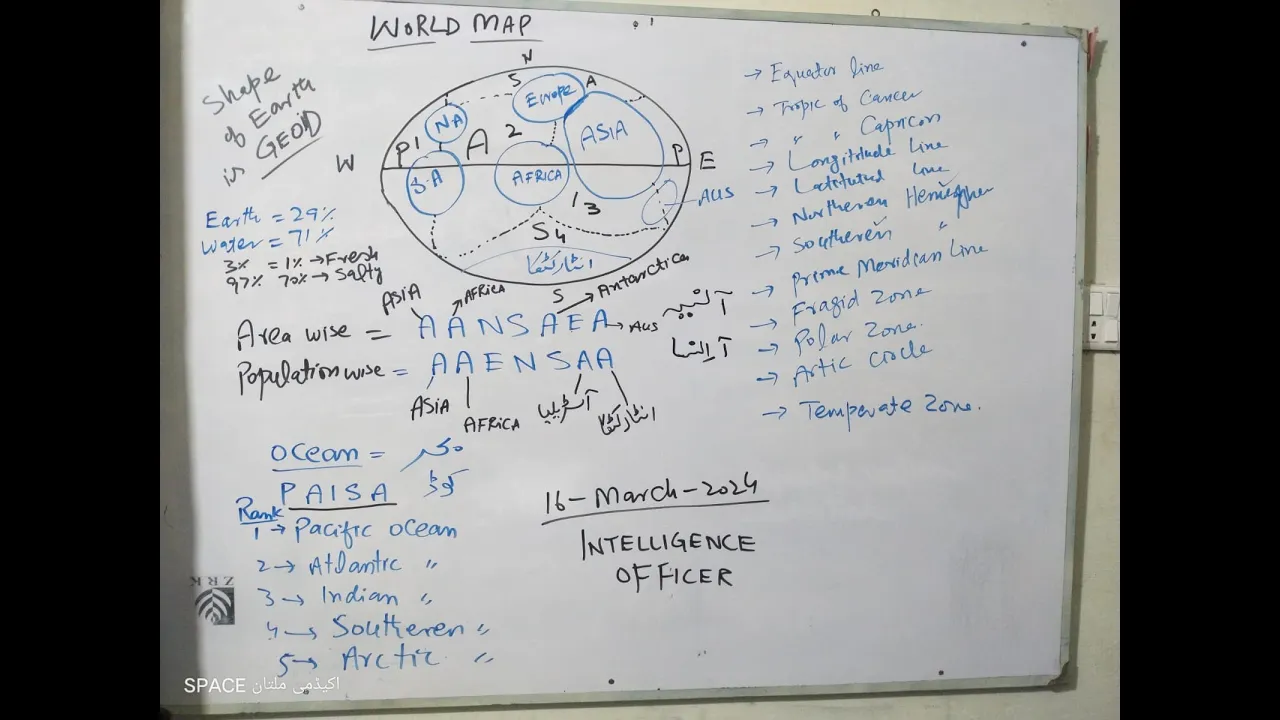 WORLD MAP
Shape
of Earth
is GEOID
N
S
A
Europe
NA
ASIA
P 1
A 2
W
P
E
S.A
AFRICA
AUS
1 3
S4
انٹارکٹیکا
S
Antarctica
Earth = 29%
Water = 71%
3% = 1% → Fresh
97% 70% → Salty
ASIA
AFRICA
Area wise = AANSAEA → AUS
Population wise = AAENSAA
ASIA
AFRICA
آسٹریلیا
انٹارکٹیکا
Ocean =
کوڈ
PAISA
Rank
1 → Pacific Ocean
2 → Atlantic "
3 → Indian "
4 → Southeren "
5 → Arctic "
16-March-2024
INTELLIGENCE
OFFICER
→ Equator line
→ Tropic of Cancer
→ " " Capricon
→ Longititude line
→ Lactitutud line
→ Northeren Hemispher
→ Southeren "
→ Prime Meridean Line
→ Fragid Zone
→ Polar Zone.
→ Artic circle
→ Temperate Zone.
ZRK
SPACE اکیڈمی ملتان